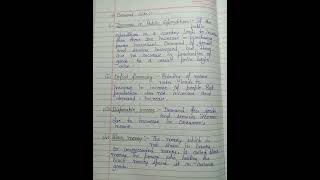 Demand side :-
i) Increase in Public expenditure :- If the public
expenditure in a country leads to income
then there are increase in purchasing
power increases. Demand of goods
and services increased but
due to no increase in production of
goods to a result price begin
rise.
ii) Deficit financing :- Printing of more
notes leads to
increase in income of people. But
production also not increase and
demand increase.
iii) Disposable income :- Demand for goods
and services increase
due to increase in consumer's
income.
iv) Black money :- The money which is
not shown in books
or unaccounted money is called black
money. The person who holding the
black money spend it on
goods.